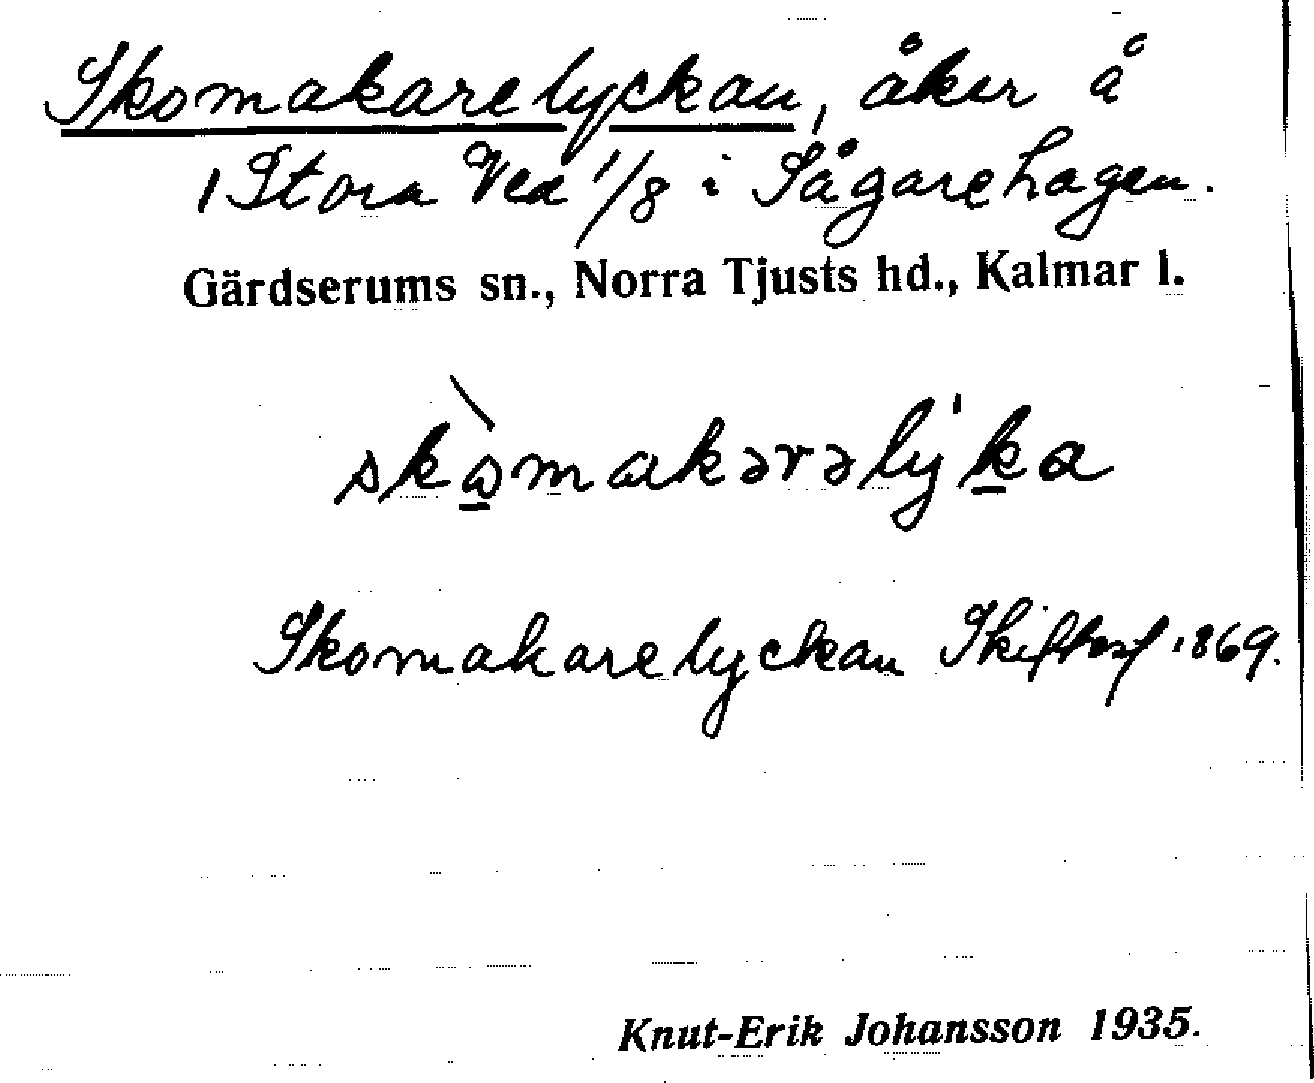 Skomakarelyckan, åker å
1 Stora Ved 1/8 i Sågarehagen.
Gärdserums sn., Norra Tjusts hd., Kalmar l.
skòmakərəly'ka
Skomakarelyckan Skiftesf 1869.
Knut-Erik Johansson 1935.